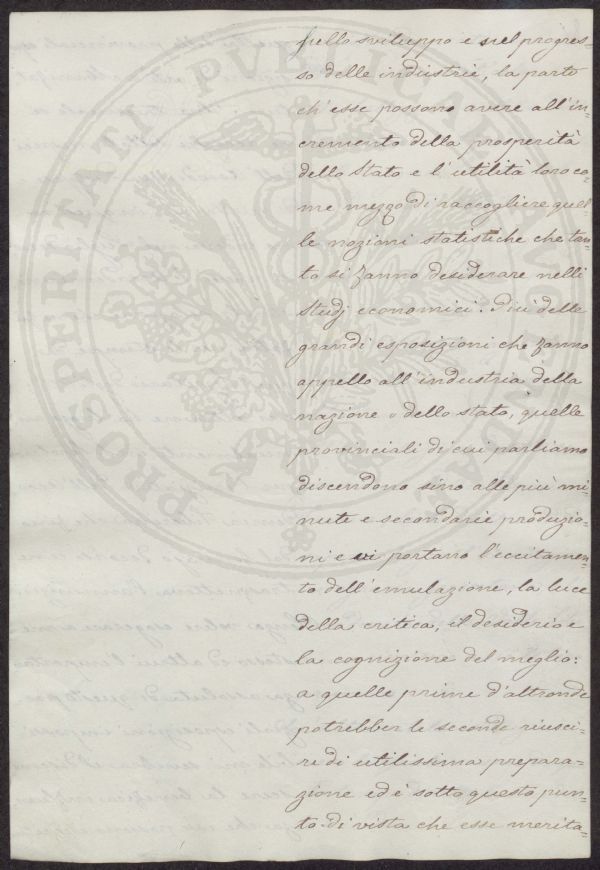 nello sviluppo e nel progres-
so delle industrie, la parte
ch'esse possono avere all'in-
cremento della prosperità
dello Stato e l'utilità loro co-
me mezzo di raccogliere quel-
le nozioni statistiche che tan-
to si fanno desiderare nelli
studj economici. Più delle
grandi esposizioni che fanno
appello all'industria della
nazione o dello stato, quelle
provinciali di cui parliamo
discendono sino alle più mi-
nute e secondarie produzio-
ni e vi portano l'eccitamen-
to dell'emulazione, la luce
della critica, il desiderio e
la cognizione del meglio:
a quelle prime d'altronde
potrebber le seconde riusci-
re di utilissima prepara-
zione ed è sotto questo pun-
to di vista che esse merita-
PROSPERITATI PVBLICAE